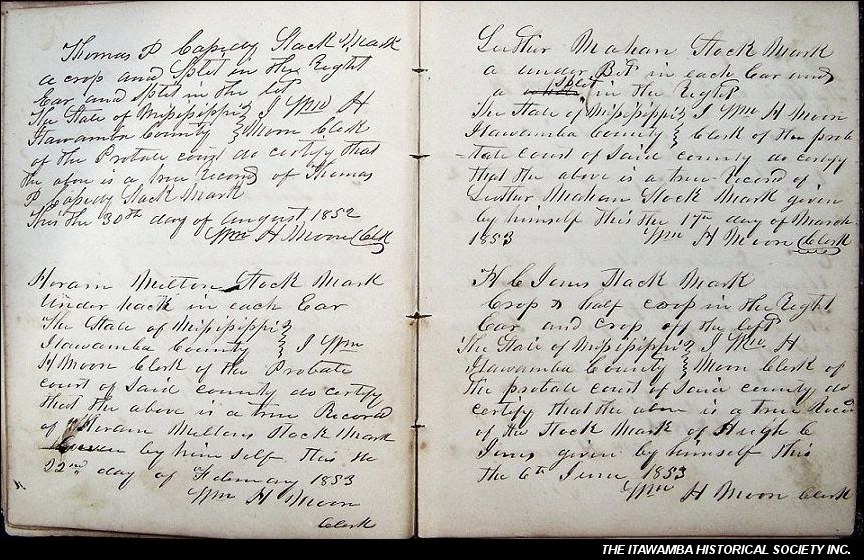 Thomas P Capedy Stock Mark
a crop and Split in the Right
Ear and Split in the left
The State of Mississippi } I Wm H
Itawamba County } Moon Clerk
of the Probate court do certify that
the above is a true Record of Thomas
P Capedy Stock Mark
This the 30th day of August 1852
Wm H Moon Clerk
Hiram Melton Stock Mark
Under hack in each Ear
The State of Mississippi }
Itawamba County } I Wm
H Moon Clerk of the Probate
court of Said county do certify
that the above is a true Record
of Hiram Meltons Stock Mark
by him self this the
22nd day of February 1853
Wm H Moon
Clerk
Luther Mahan Stock Mark
a under Bit in each Ear and
a split in the Right
The State of Mississippi } I Wm H Moon
Itawamba County } Clerk of the prob
-tate court of Said county do certify
that the above is a true Record of
Luther Mahan Stock Mark given
by himself this the 17th day of March
1853 Wm H Moon Clerk
H C Jones Stock Mark
Crop & half crop in the Right
Ear and crop off the left
The State of Mississippi } I Wm H
Itawamba County } Moon Clerk of
the probate court of Said county do
certify that the above is a true Record
of the Stock Mark of Hugh C
Jones given by himself this
the 6th June 1853
Wm H Moon Clerk
THE ITAWAMBA HISTORICAL SOCIETY INC.